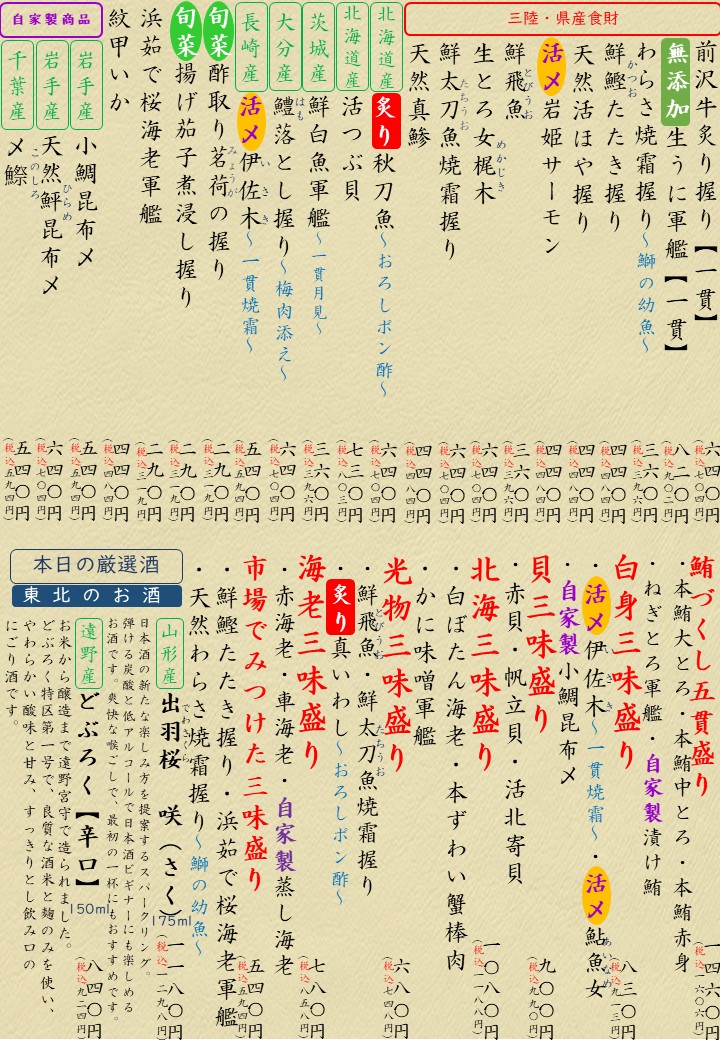 三陸・県産食財
前沢牛炙り握り【一貫】 六四〇円(税込七〇四円)
無添加生うに軍艦【一貫】 八二〇円(税込九〇二円)
わらさ焼霜握り〜鰤の幼魚〜 三六〇円(税込三九六円)
かつお
鮮鰹たたき握り 四四〇円(税込四八四円)
天然活ほや握り 四四〇円(税込四八四円)
活〆岩姫サーモン 四四〇円(税込四八四円)
とびうお
鮮飛魚 三六〇円(税込三九六円)
めかじき
生とろ女梶木 六四〇円(税込七〇四円)
たちうお
鮮太刀魚焼霜握り 六四〇円(税込七〇四円)
天然真鯵 四四〇円(税込四八四円)
北海道産
炙り秋刀魚〜おろしポン酢〜 六四〇円(税込七〇四円)
北海道産
活つぶ貝 七三〇円(税込八〇三円)
茨城産
鮮白魚軍艦〜一貫月見〜 三六〇円(税込三九六円)
大分産
はも
鱧落とし握り〜梅肉添え〜 六四〇円(税込七〇四円)
長崎産
いさき
活〆伊佐木〜一貫焼霜〜 五四〇円(税込五九四円)
みょうが
旬菜酢取り茗荷の握り 二九〇円(税込三一九円)
旬菜揚げ茄子煮浸し握り 二九〇円(税込三一九円)
浜茹で桜海老軍艦 二九〇円(税込三一九円)
紋甲いか 四四〇円(税込四八四円)
自家製商品
岩手産
小鯛昆布〆 五四〇円(税込五九四円)
岩手産
ひらめ
天然鮃昆布〆 六四〇円(税込七〇四円)
千葉産
このしろ
〆鰶 五四〇円(税込五九四円)
鮪づくし五貫盛り 一四六〇円(税込一六〇六円)
・本鮪大とろ・本鮪中とろ・本鮪赤身
・ねぎとろ軍艦・自家製漬け鮪
白身三味盛り 八三〇円(税込九一三円)
いさき あいなめ
・活〆伊佐木〜一貫焼霜〜・活〆鮎魚女
・自家製小鯛昆布〆
貝三味盛り 九〇〇円(税込九九〇円)
・赤貝・帆立貝・活北寄貝
北海三味盛り 一〇八〇円(税込一一八八円)
・白ぼたん海老・本ずわい蟹棒肉
・かに味噌軍艦
光物三味盛り 六八〇円(税込七四八円)
とびうお たちうお
・鮮飛魚・鮮太刀魚焼霜握り
・炙り真いわし〜おろしポン酢〜
海老三味盛り 七八〇円(税込八五八円)
・赤海老・車海老・自家製蒸し海老
市場でみつけた三味盛り 五四〇円(税込五九四円)
・鮮鰹たたき握り・浜茹で桜海老軍艦
・天然わらさ焼霜握り〜鰤の幼魚〜
本日の厳選酒
東北のお酒
山形産
でわさくら
出羽桜 咲(さく) 175ml 一一八〇円(税込一二九八円)
日本酒の新たな楽しみ方を提案するスパークリング。
弾ける炭酸と低アルコールで日本酒ビギナーにも楽しめる
お酒です。爽快な喉ごしで、最初の一杯にもおすすめです。
遠野産
どぶろく【辛口】 150ml 八四〇円(税込九二四円)
お米から醸造まで遠野宮守で造られました。
どぶろく特区第一号で、良質な酒米と麹のみを使い、
やわらかい酸味と甘み、すっきりとし飲み口の
にごり酒です。